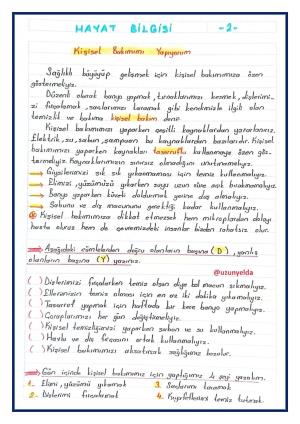 HAYAT BİLGİSİ -2-
Kişisel Bakımımı Yapıyorum
Sağlıklı büyüyüp gelişmek için kişisel bakımımıza özen
göstermeliyiz.
Düzenli olarak banyo yapmak, tırnaklarımızı kesmek, dişlerimi-
zi fırçalamak, saçlarımızı taramak gibi kendimizle ilgili olan
temizlik ve bakıma kişisel bakım denir.
Kişisel bakımımızı yaparken çeşitli kaynaklardan yararlanırız.
Elektrik, su, sabun, şampuan bu kaynaklardan bazılarıdır. Kişisel
bakımımızı yaparken kaynakları tasarruflu kullanmaya özen gös-
termeliyiz. Kaynaklarımızın sınırsız olmadığını unutmamalıyız.
Giysilerimizi sık sık yıkanmaması için temiz kullanmalıyız.
Elimizi, yüzümüzü yıkarken suyu uzun süre açık bırakmamalıyız.
Banyo yaparken küveti doldurmak yerine duş almalıyız.
Sabunu ve diş macununu gerektiği kadar kullanmalıyız.
Kişisel bakımımıza dikkat etmezsek hem mikroplardan dolayı
hasta oluruz hem de çevremizdeki insanlar bizden rahatsız olur.
Aşağıdaki cümlelerden doğru olanların başına (D), yanlış
olanların başına (Y) yazınız.
@uzunyelda
( ) Dişlerimizi fırçalarken temiz olsun diye bol macun sıkmalıyız.
( ) Ellerimizin temiz olması için en az iki dakika yıkamalıyız.
( ) Tasarruf yapmak için haftada bir kere banyo yapmalıyız.
( ) Çoraplarımızı her gün değiştirmeliyiz.
( ) Kişisel temizliğimizi yaparken sabun ve su kullanmalıyız.
( ) Havlu ve diş fırçasını ortak kullanmalıyız.
( ) Kişisel bakımımızı aksatırsak sağlığımız bozulur.
Gün içinde kişisel bakımımız için yaptığımız 4 şeyi yazalım.
1- Elimi, yüzümü yıkamak 3. Saçlarımı taramak
2- Dişlerimi fırçalamak 4. Kıyafetlerimi temiz tutmak.